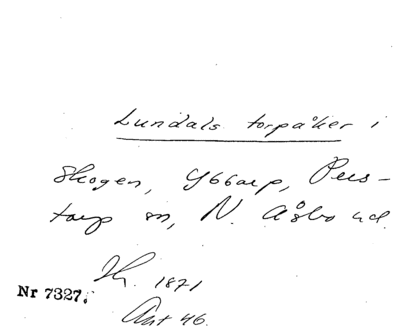 Lundals torpåker i
skogen, Ybbarp, Pers-
torp sn, N. Åsbo hd.
Nr 7327.
1871
Ant 46.